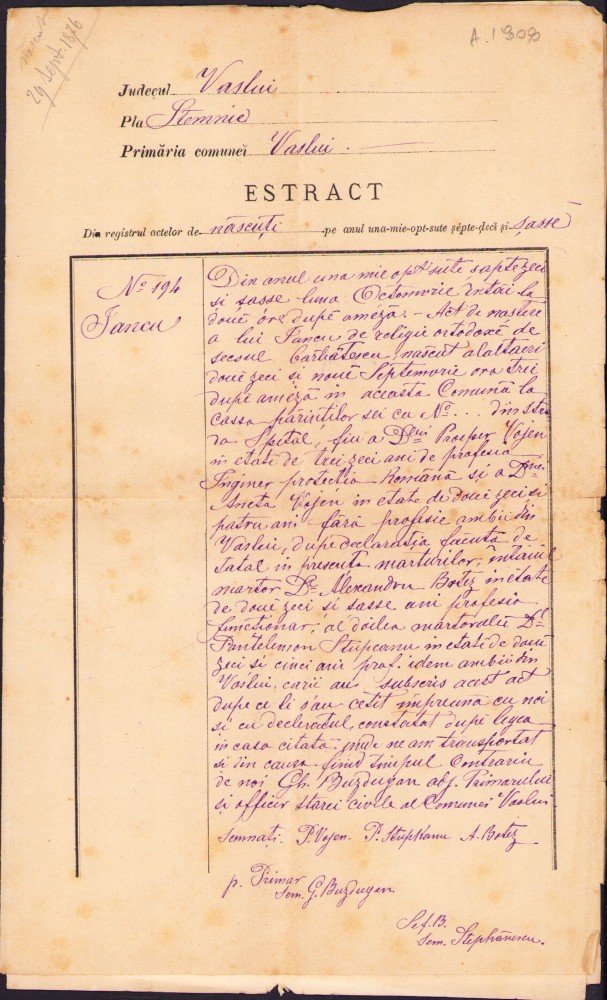 născut
29 Sept. 1876
A. 1909
Județul Vaslui
Pla Stemnic
Primăria comuneĭ Vaslui.
ESTRACT
Din registrul actelor de născuți pe anul una-mie-opt-sute șépte-ḍecĭ și șasse
No 194
Iancu
Din anul una mie opt sute saptezeci
si sasse luna Octomvrie intai la
douĕ óre dupĕ améza. – Act de nascere
a lui Iancu, de religie ortodoxĕ de
secsul bărbătescu, născut alaltaeri
douĕ zeci si nouĕ Septemvrie ora trei
dupe amézĕ in aceasta Comunĕ la
cassa părintilor sei cu No ... din stra
da Spital, fiu a Dlui Prosper Vojen
in etate de trei zeci ani de profesia
Inginer protectia Română si a Dnei
Aneta Vojen in etate de douĕ zeci si
patru ani fără profesie ambii din
Vaslui, dupe declaratia facuta de
tatal in presenta marturilor, întaiul
martor Dl. Alexandru Botez in etate
de douĕ zeci si sasse ani profesia
functionar, al doilea martor alu Dl.
Pantelemon Stupcanu in etate de douĕ
zeci si cinci ani prof. idem ambii din
Vaslui, carii au subscris acest act
dupe ce li s'au cetit impreună cu noi
si cu declaratul, constatat dupe legea
in casa citată unde ne am transportat
si din causa fiind timpul Contrariu
de noi Gh. Buzdugan adj. Primarului
si officer starei civile al Comunei Vaslui
semnati. P. Vojen. P. Stupcanu A. Botez
p. Primar
sem. G. Buzdugan
Sef. B.
sem. Stephănescu.